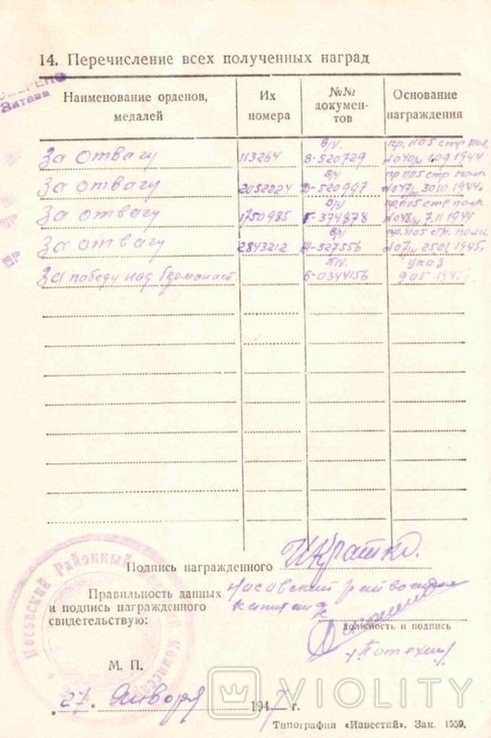 14. Перечисление всех полученных наград
Наименование орденов, медалей
Их номера
№№ документов
Основание награждения
За отвагу 113264 в/у. В-520729 пр. 1105 стр пол
1944
За отвагу 2052224 в/у 520997 пр 1105 стр полк
№047н 30 10 1944
За отвагу 1750985 в/у Г-374878 пр. 1105 стр полк
№048н 7.11 1944
За отвагу 2843212 в/у 527556 пр. 1105 стр. полк
№07н 25 01 1945г
За победу над Германией п/у. 0344156 указ
9 05 1945г
Подпись награжденного ИКратко.
Правильность данных Носовский райвоенком
и подпись награжденного капитан
свидетельствую:
должность и подпись
/Потехин/
М. П.
„27" Января 1947 г.
Типография «Известий». Зак. 1559.
Носовский Районный
VIOLITY